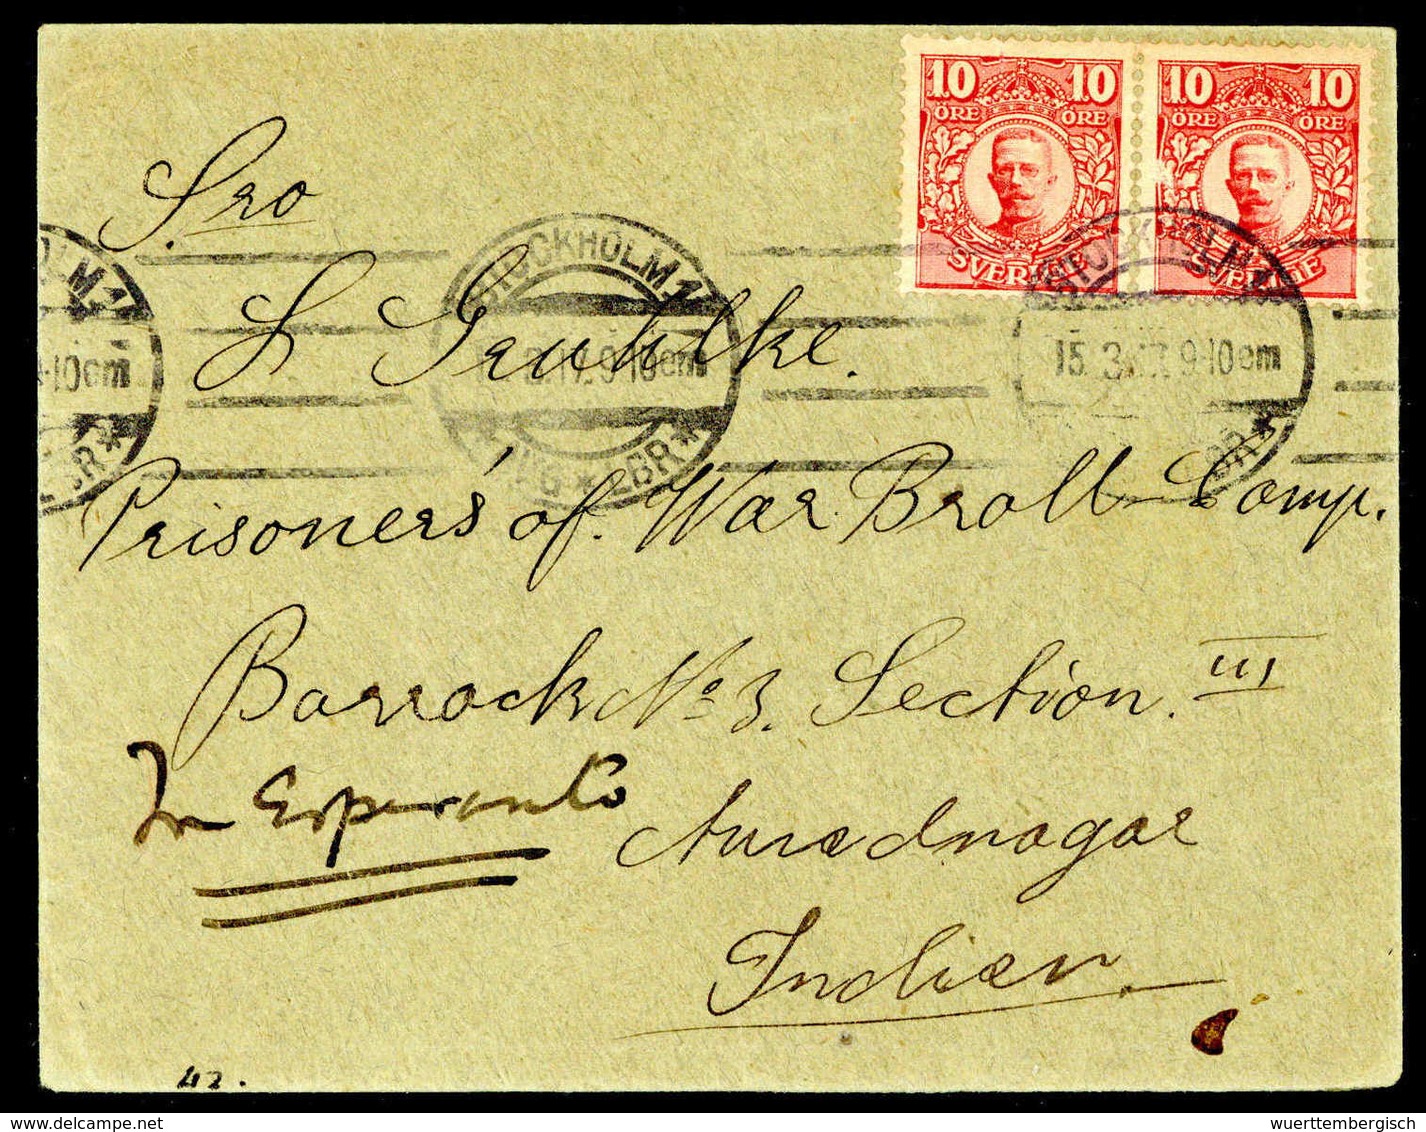 10 10
ÖRE ÖRE
SVERIGE
10 10
ÖRE ÖRE
SVERIGE
Sro
STOCKHOLM 1
15.3.17. 9-10 em
LBR
L Gruhlke.
Prisoners' of. War Brott Comp.
Barrack No 3. Section. III
In Esperanto
Amednagar
Indien.
42.
delcampe.net
wuerttembergisch